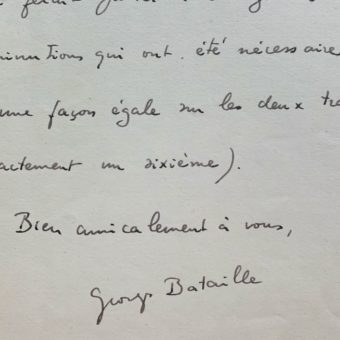 inutions qui ont été nécessaire
une façon égale sur les deux tra
actement un sixième).
Bien amicalement à vous,
Georges Bataille